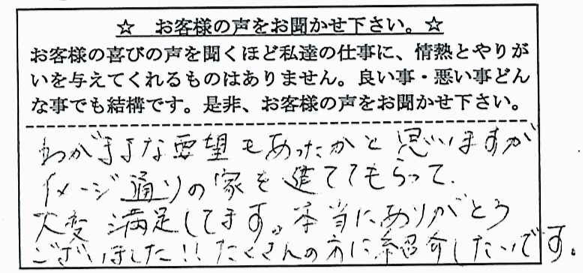 ☆ お客様の声をお聞かせ下さい。☆
お客様の喜びの声を聞くほど私達の仕事に、情熱とやりが
いを与えてくれるものはありません。良い事・悪い事どん
な事でも結構です。是非、お客様の声をお聞かせ下さい。
わがままな要望もあったかと思いますが
イメージ通りの家を建ててもらって、
大変満足してます。本当にありがとう
ございました!!たくさんの方に紹介したいです。